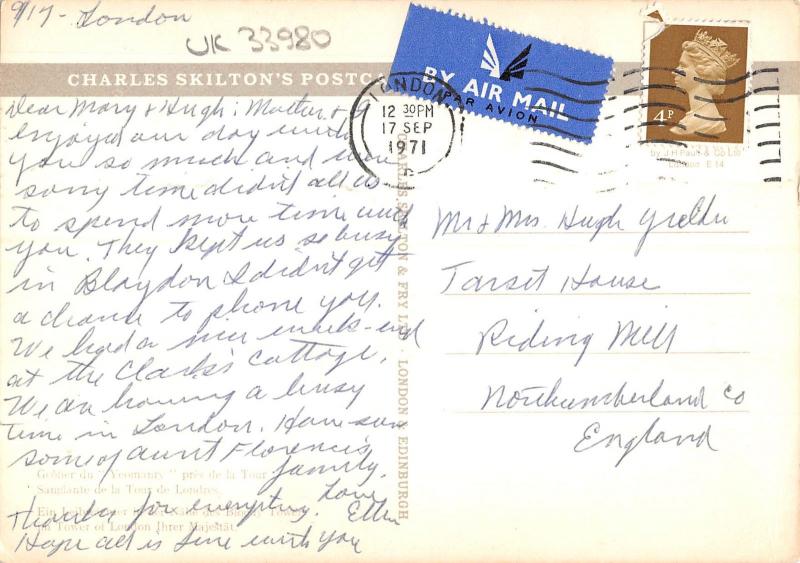 9/17 - London
UK 33980
CHARLES SKILTON'S POSTC
BY AIR MAIL
PAR AVION
LONDON
12 30PM
17 SEP
1971
4P
by J H Paull & Co Ltd
London E 14
Dear Mary & Hugh: Mother & I
enjoyed our day with
you so much and were
sorry time didn't
to spend more time with
you. They kept us so busy
in Blaydon I didn't get
a chance to phone you.
We had a nice week-end
at the Clark's Cottage.
We are having a busy
time in London. Have seen
some of Aunt Florence's
family.
Love
Thanks for everything. Ellen
Hope all is fine with you
Mr & Mrs. Hugh
Tarset House
Riding Mill
Northumberland Co
England
CHARLES SKILTON & FRY LTD., LONDON & EDINBURGH
Goûter du "Yeomanry" près de la Tour
Sanglante de la Tour de Londres.
Ein
im Tower of London Ihrer Majestät.